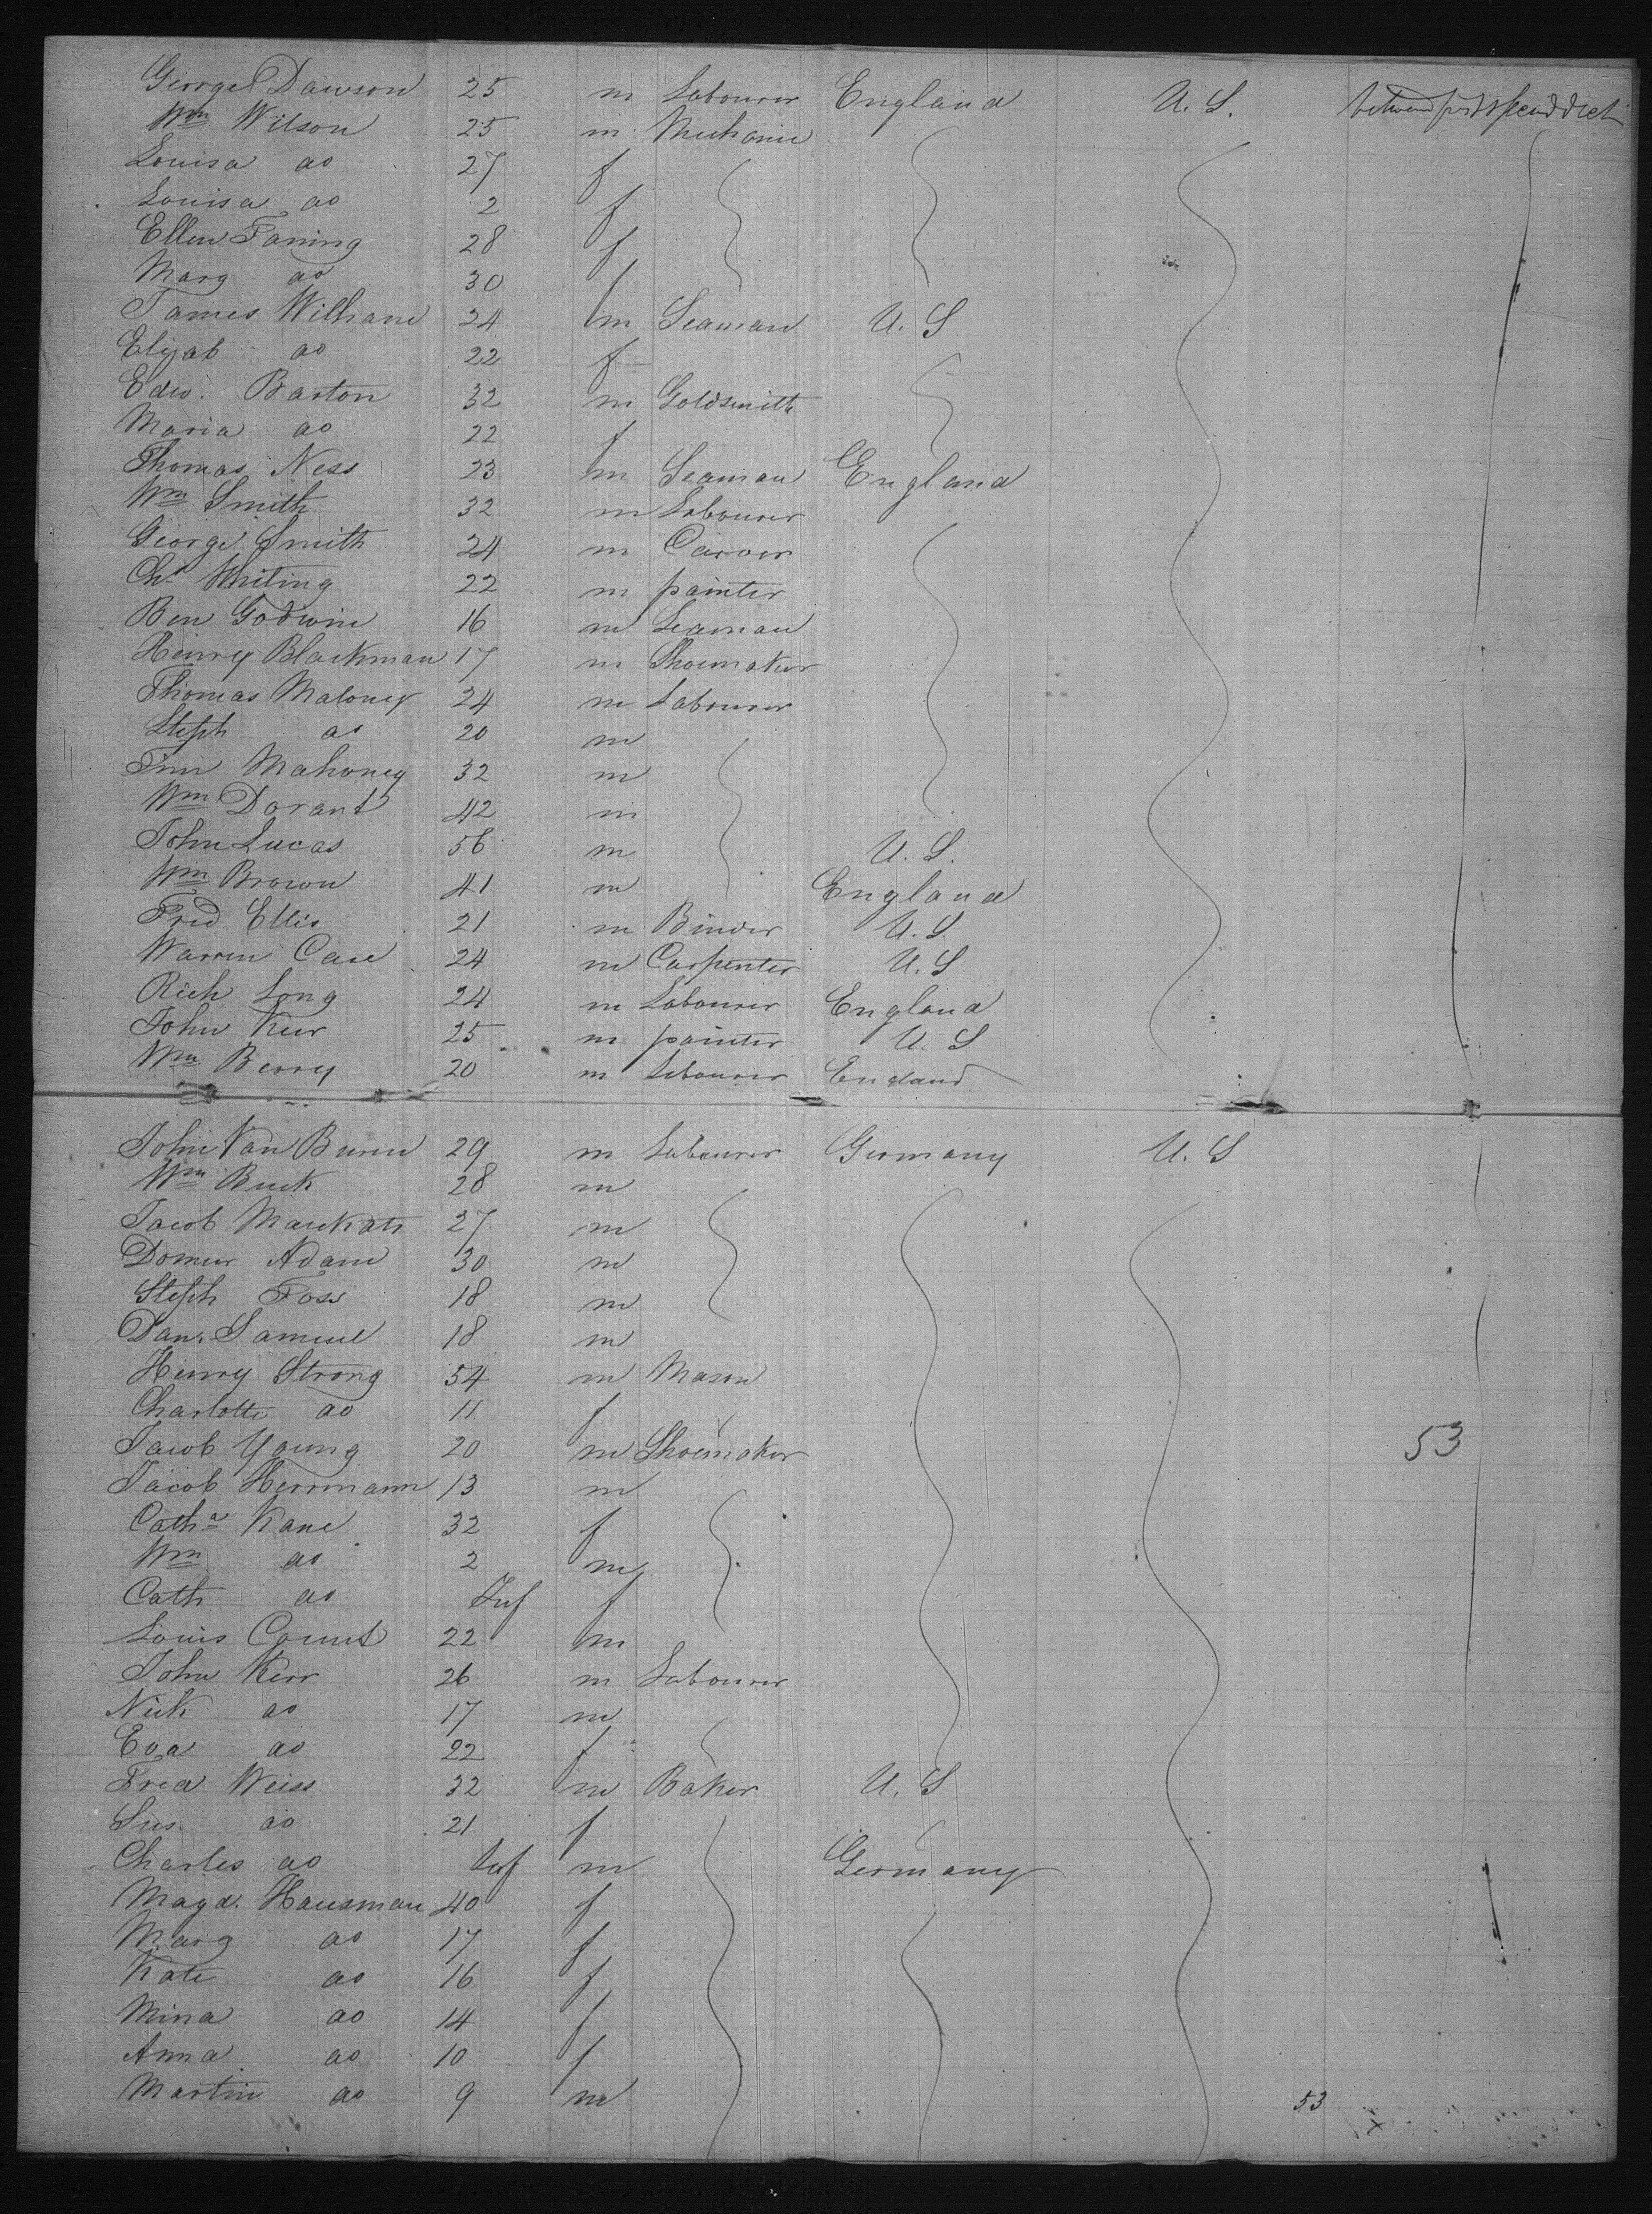 George Dawson 25 m Labourer England U. S.
Wm Wilson 25 m Mechanic
Louisa do 27 f
Louisa do 2 f
Ellen Faning 28 f
Marg do 30 f
James Willham 24 m Seaman U. S
Elizab do 22 f
Edw. Barton 32 m Goldsmith
Maria do 22 f
Thomas Ness 23 m Seaman England
Wm Smith 32 m Labourer
George Smith 24 m Carver
Chs Whiting 22 m painter
Ben Godwin 16 m Seaman
Henry Blackman 17 m Shoemaker
Thomas Maloney 24 m Labourer
Steph do 20 m
Tim Mahoney 32 m
Wm Dorant 42 m
John Lucas 56 m U. S.
Wm Brown 41 m England
Fred Ellis 21 m Binder U. S
Warren Case 24 m Carpenter U. S
Rich Long 24 m Labourer England
John Kur 25 m painter U. S
Wm Berry 20 m Labourer England
John Van Buren 29 m Labourer Germany U. S
Wm Buck 28 m
Jacob 27 m
Adam 30 m
Steph 18 m
Dan. Samuel 18 m
Henry Strong 54 m Mason
Charlotte do 11 f
Jacob Young 20 m Shoemaker 53
Jacob Herrmann 13 m
Catha Kane 32 f
Wm do 2 m
Cath do Inf f
Louis Count 22 m
John Kerr 26 m Labourer
Nick do 17 m
Eva do 22 f
Fred Weiss 32 m Baker U. S
Sus. do 21 f
Charles do Inf m Germany
Magd. Hausman 40 f
Marg do 17 f
Kate do 16 f
Mina do 14 f
Anna do 10 f
Martin do 9 m 53